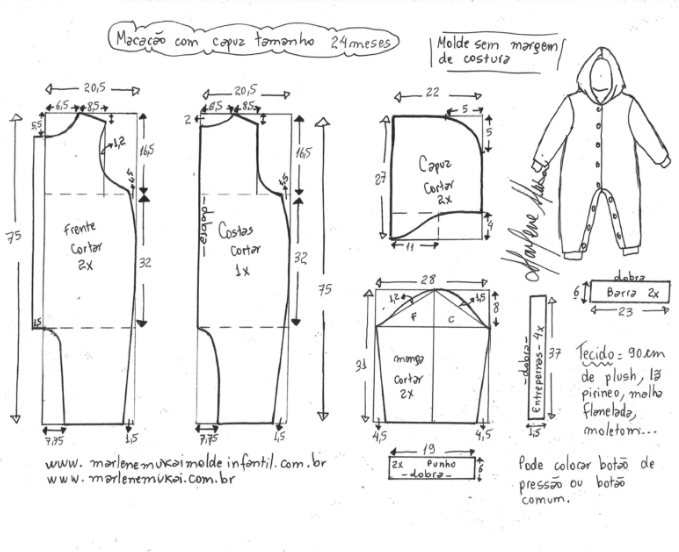 Macacão com capuz tamanho 24 meses
Molde sem margem
de costura
20,5
6,5
8,5
5,5
1,2
16,5
4,5
75
Frente
cortar
2x
32
1,5
7,75
1,5
20,5
6,5
8,5
2
16,5
4,5
-dobra-
Costas
cortar
1x
32
75
7,75
1,5
22
5
5
27
Capuz
cortar
2x
11
4
Marlene Mukai
28
1,2
1,5
8
F
C
31
manga
cortar
2x
4,5
4,5
19
2x Punho
-dobra-
6
-dobra-
Entrepernas-4x
37
1,5
dobra
6
Barra 2x
23
Tecido = 90cm
de plush, lã
pirineo, malha
flanelada,
moletom...
Pode colocar botão de
pressão ou botão
comum.
www.marlenemukaimoldeinfantil.com.br
www.marlenemukai.com.br